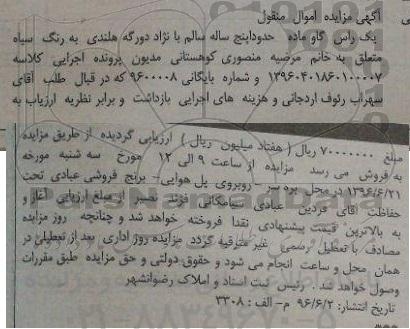 آگهی مزایده اموال منقول
یک راس گاو ماده حدودا پنج ساله سالم با نژاد دورگه هلندی به رنگ سیاه
متعلق به خانم مرضیه منصوری کوهستانی مدیون پرونده اجرایی کلاسه
۱۳۹۶۰۴۰۱۸۶۰۱۰۰۰۰۷ و شماره بایگانی ۹۶۰۰۰۰۸ که در قبال طلب آقای
سهراب رئوف اردجانی و هزینه های اجرایی بازداشت و برابر نظریه ارزیاب به
مبلغ ۷۰۰۰۰۰۰۰ ریال ( هفتاد میلیون ریال ) ارزیابی گردیده از طریق مزایده
به فروش می رسد مزایده از ساعت ۹ الی ۱۲ مورخ سه شنبه مورخه
۱۳۹۶/۶/۲۱ در محل بره سر - روبروی پل هوایی- برنج فروشی عبادی تحت
حفاظت آقای فردین عبادی سیامکانی فرزند نصیر از مبلغ ارزیابی آغاز و
به بالاترین قیمت پیشنهادی نقدا فروخته خواهد شد و چنانچه روز مزایده
مصادف با تعطیل رسمی غیر مترقبه گردد مزایده روز اداری بعد از تعطیلی در
همان محل و ساعت انجام می شود و حقوق دولتی و حق مزایده طبق مقررات
وصول خواهد شد . رئیس ثبت اسناد و املاک رضوانشهر
تاریخ انتشار: ۹۶/۶/۲ م- الف : ۳۳۰۸